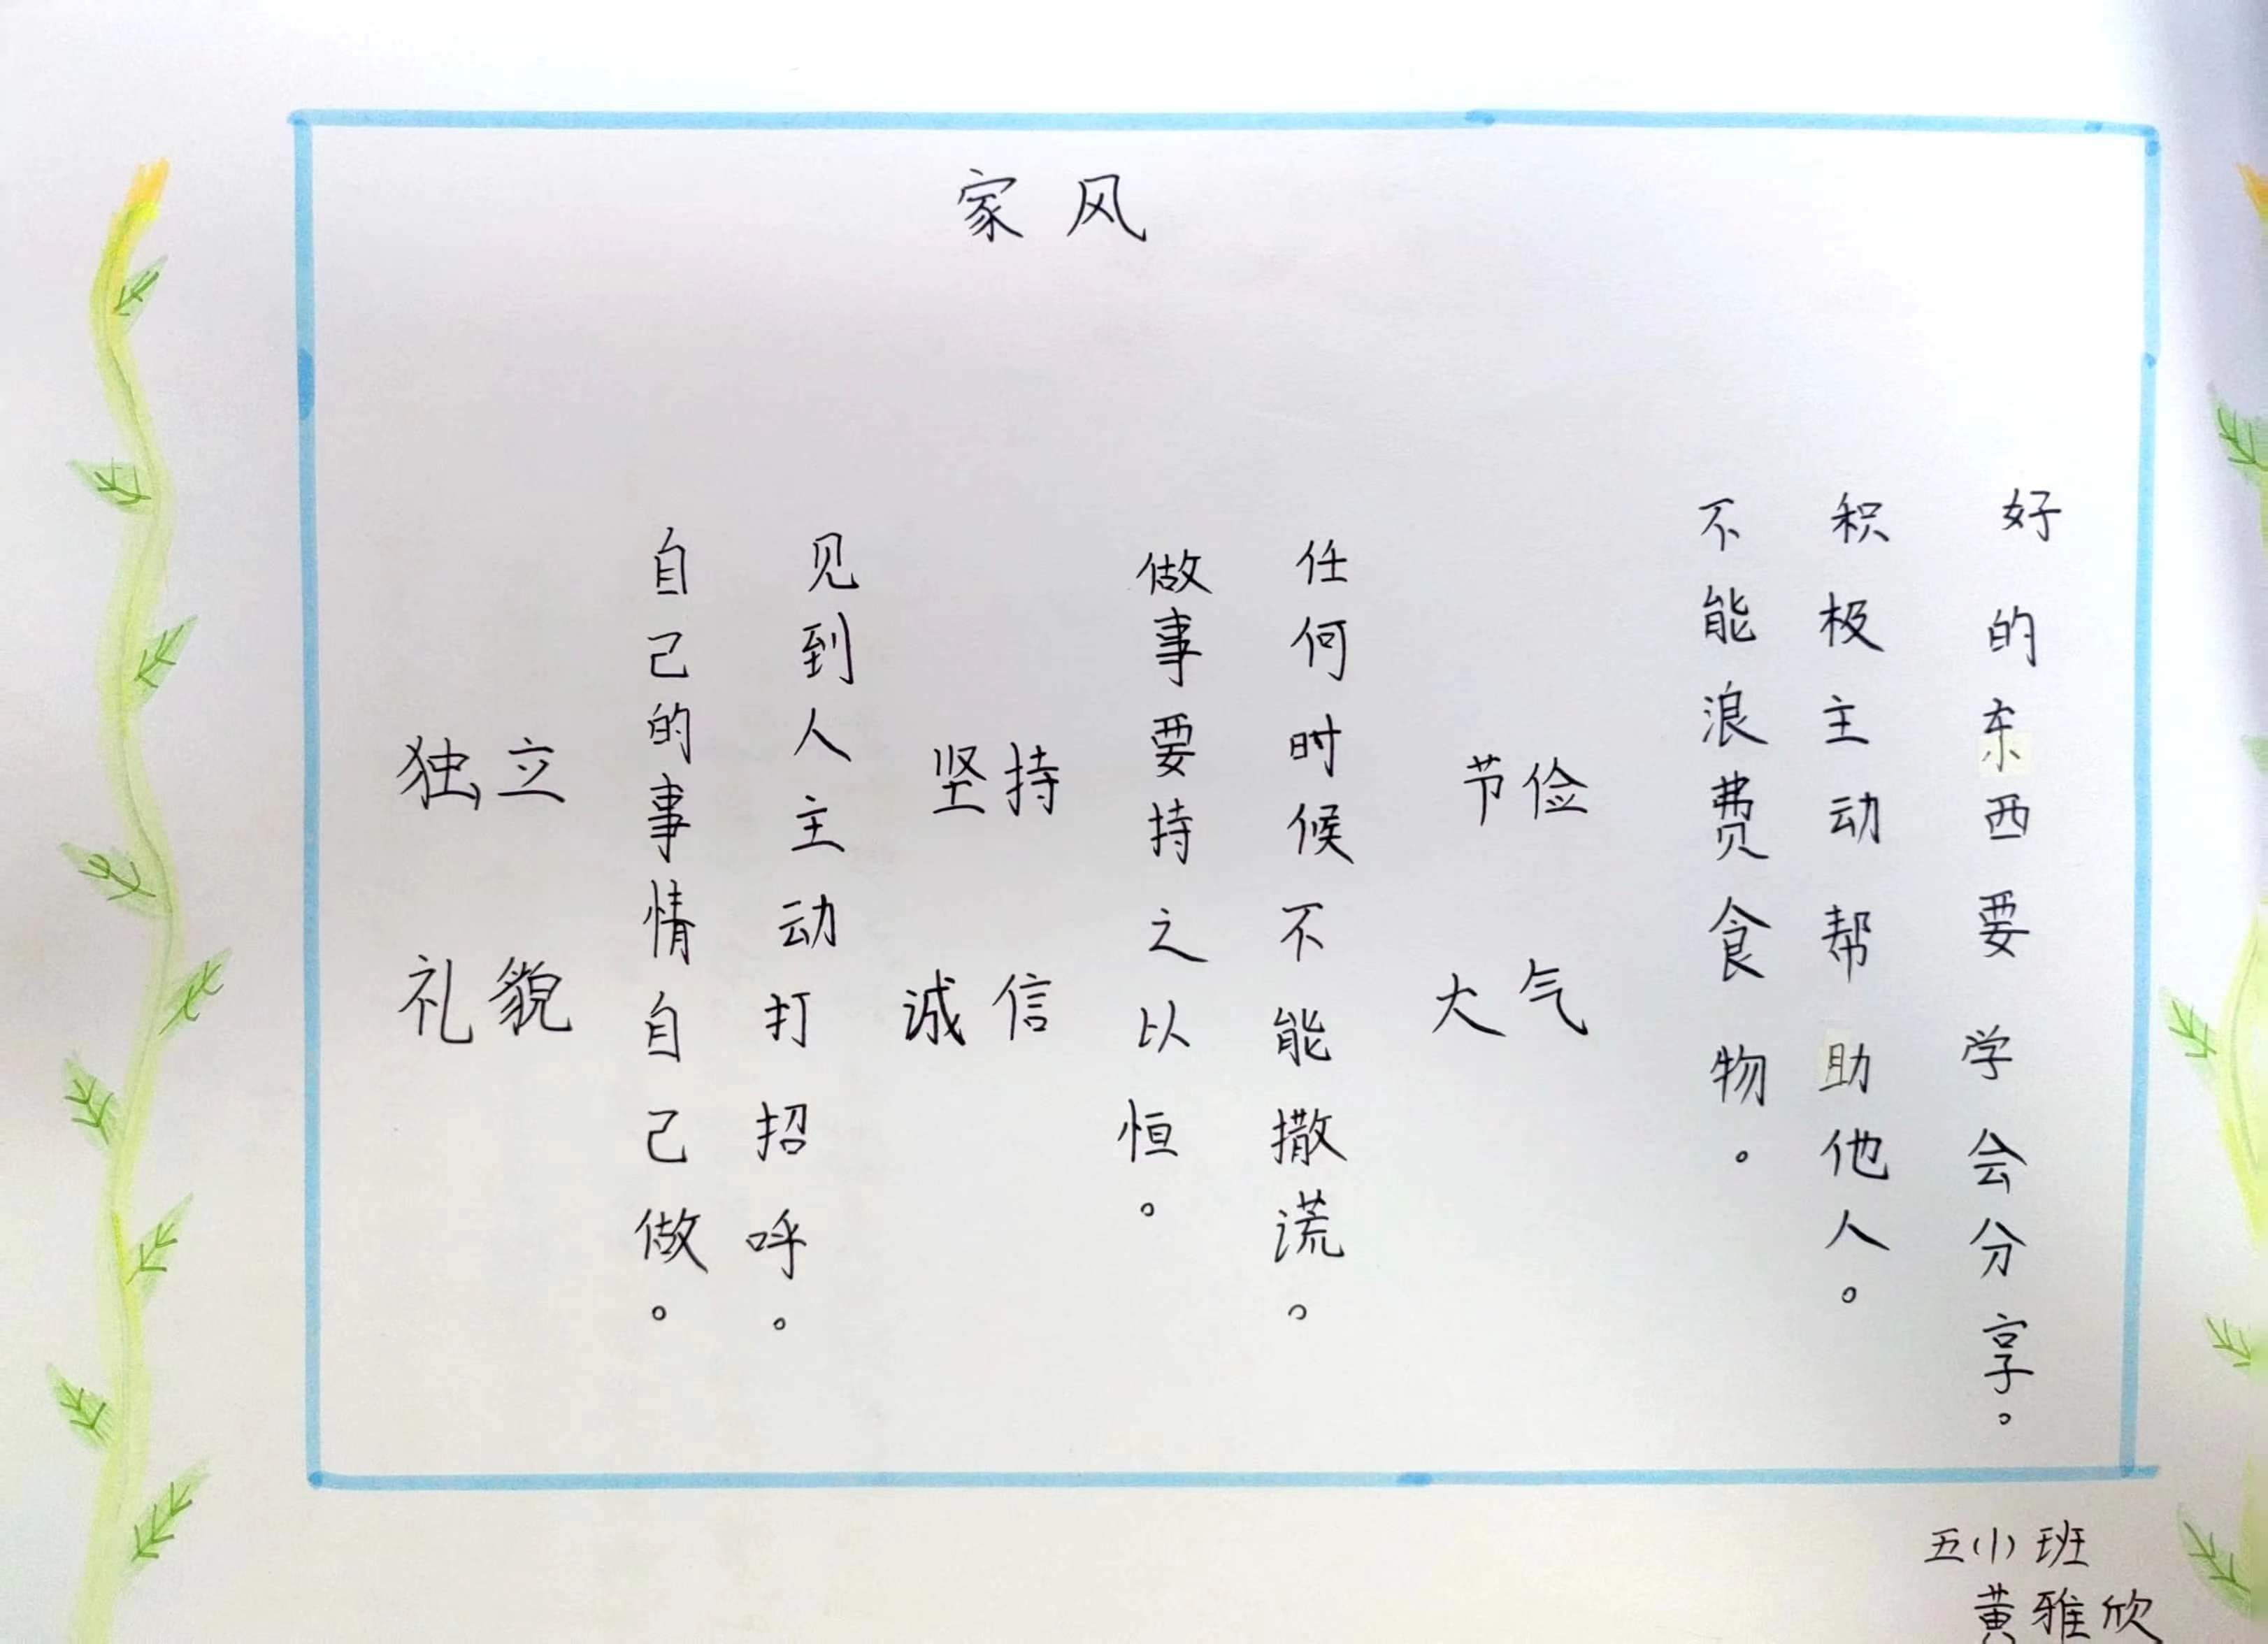 家风
独立
礼貌
自己的事情自己做。
见到人主动打招呼。
坚持
诚信
做事要持之以恒。
任何时候不能撒谎。
节俭
大气
不能浪费食物。
积极主动帮助他人。
好的东西要学会分享。
五(1)班
黄雅欣